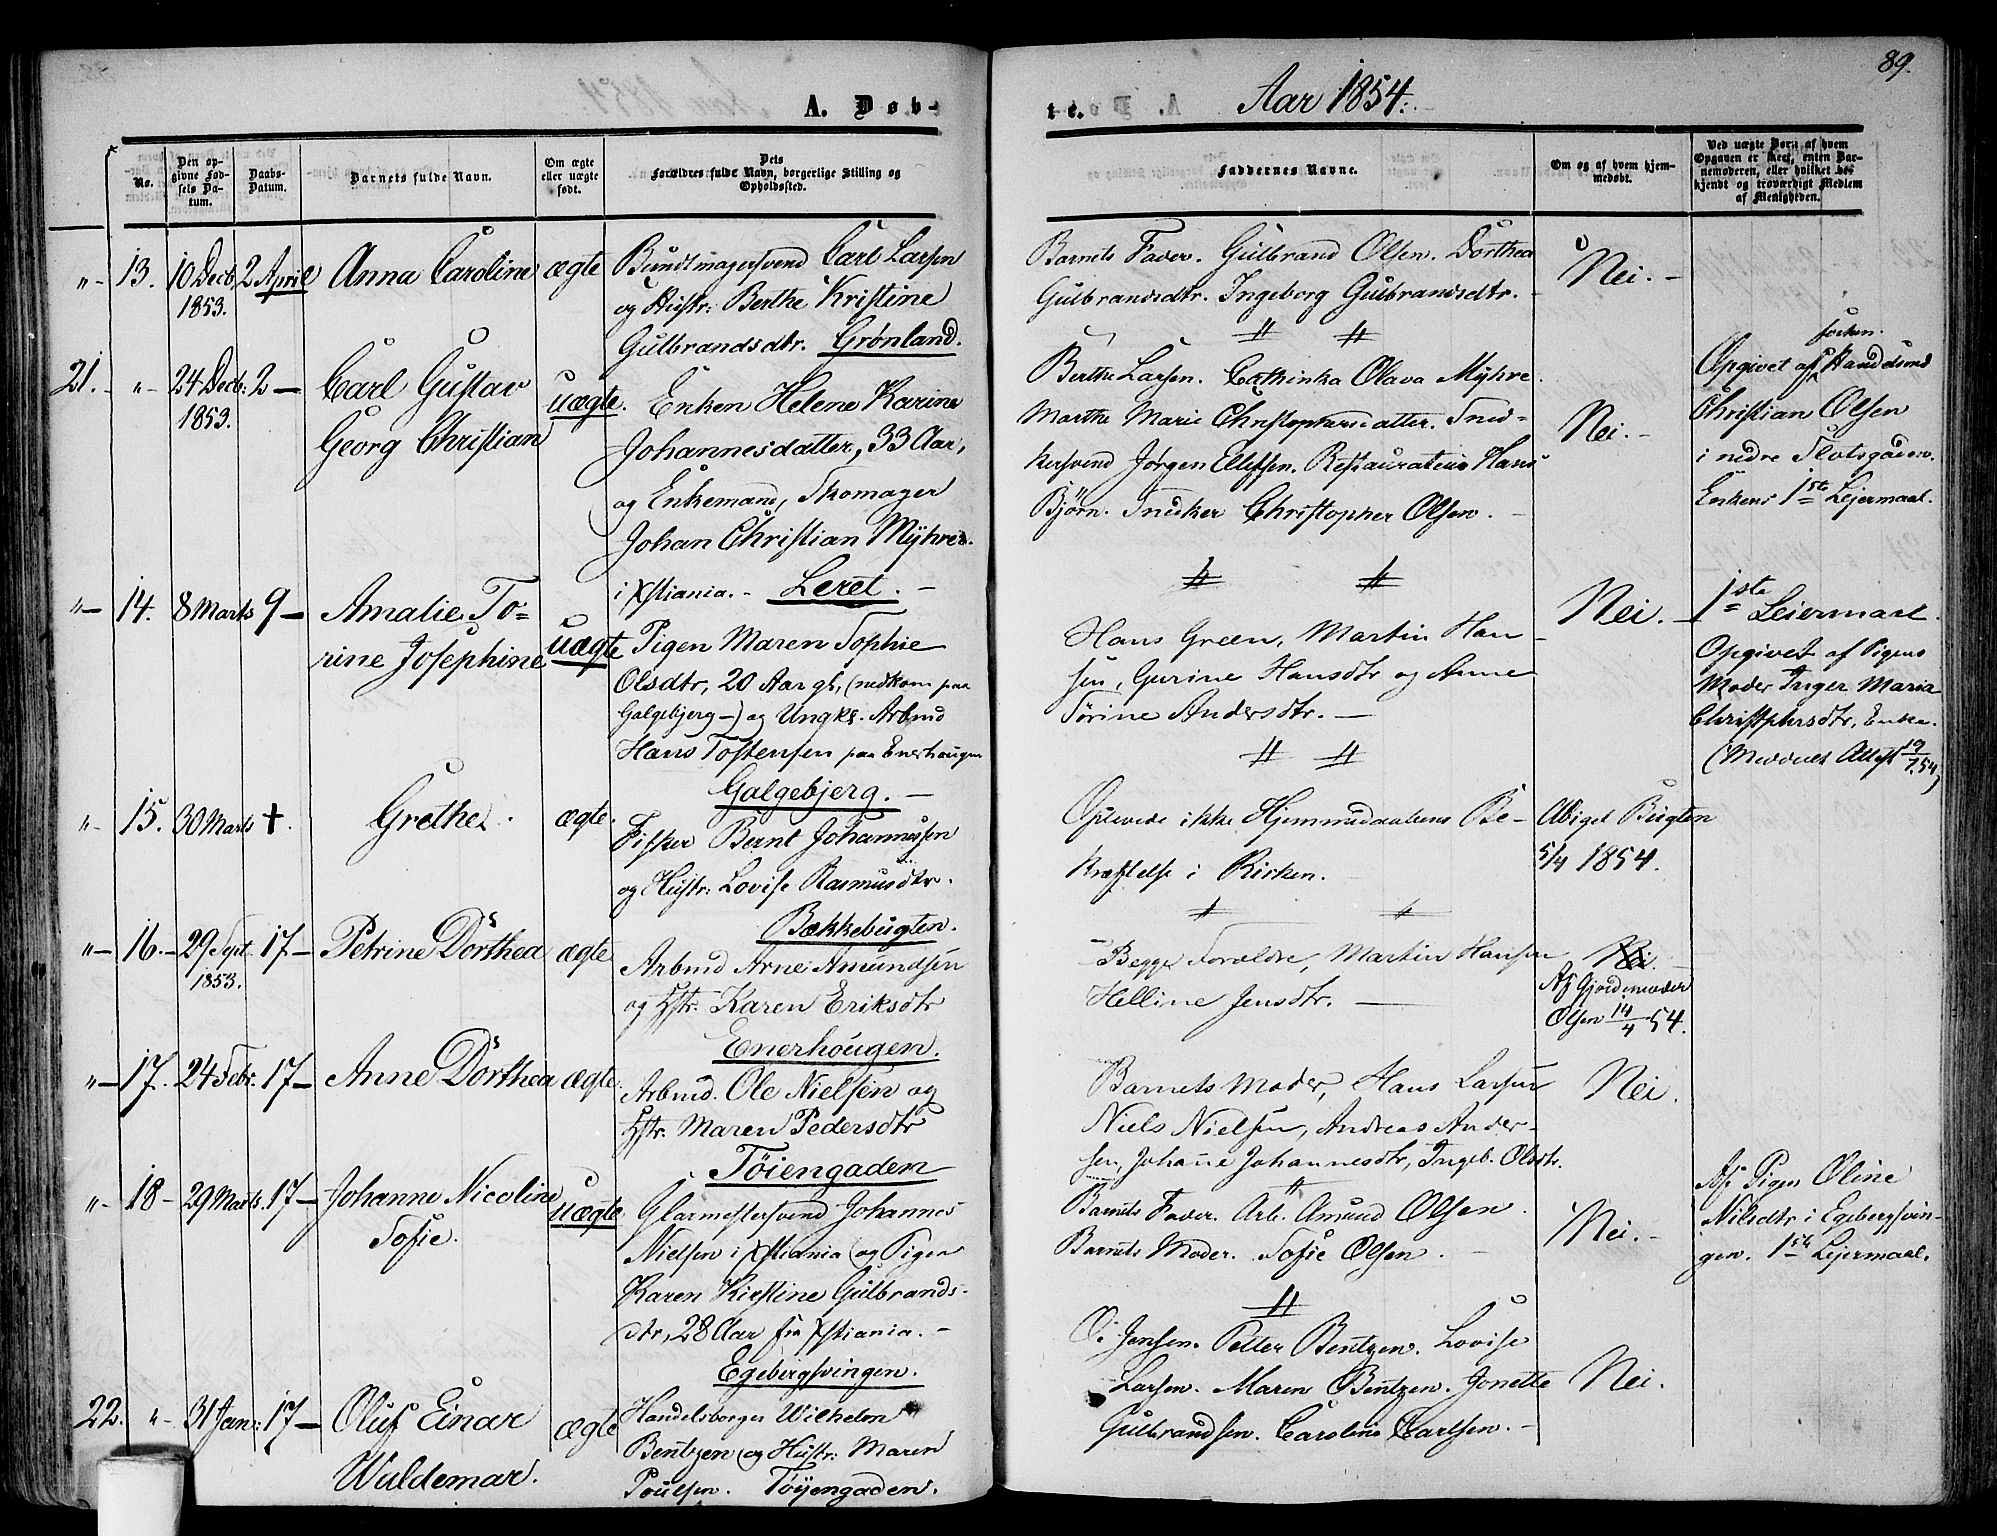 89.
A. Døb-
te.
Aar 1854.
No.
Den op-
givne Fød-
sels Da-
tum.
Daabs-
Datum.
Barnets fulde Navn.
Om ægte
eller uægte
født.
Dets
Forældres fulde Navn, borgerlige Stilling og
Opholdssted.
Faddernes Navne.
Om og af hvem hjem-
medøbt.
Ved uægte Børn af hvem
Opgaven er skeet, enten Bar-
nemoderen, eller hvilket be-
kjendt og troværdigt Medlem
af Menigheden.
"- 13. 10 Decb. 2 April Anna Caroline ægte
1853.
Bundtmagersvend Carl Larsen
og Hustr: Berthe Kristine
Gulbrandsdtr. Grønland.
Barnets Fader. Gulbrand Olsen. Dorthea
Gulbrandsdtr. Ingeborg Gulbrandsdtr. -
Nei. -
21. "- 24 Decb. 2 - Carl Gustav uægte.
1853.
Georg Christian
Enken Helene Karine
Johannesdatter, 33 Aar,
og Enkemand, Skomager
Johan Christian Myhre
i Xstiania. - Leret. -
Berthe Larsen. Cathinka Olava Myhre.
Marthe Marie Christophersdatter. Sned-
kersvend Jørgen Ellefsen. Restaurateur Hans
Bjørn. Snedker Christopher Olsen. -
Nei. -
Opgivet af Handelsmd
Christian Olsen
i nedre Slotsgaden.
Enkens 1ste Lejermaal.
"- 14. 8 Marts 9 - Amalie To-
rine Josephine uægte
Pigen Maren Sophie
Olsdtr, 20 Aar gl, (nedkom paa
Galgebjerg -) og Ungk. Arbmd
Hans Tostensen paa Enerhougen
Galgebjerg. -
Hans Green, Martin Han-
sen, Gurine Hansdtr og Anne
Sørine Andersdtr. -
Nei. -
1ste Leiermaal.
Opgivet af Pigens
Moder Inger Maria
Christphersdtr, Enke.
"- 15. 30 Marts +. Grethe. ægte.
Fisker Bernt Johannesen
og Hustr: Lovise Rasmusdtr.
Bækkebugten.
Oplevede ikke Hjemmedaabens Be-
kræftelse i Kirken. -
Abigel Bugten
5/4 1854.
"- 16. - 29 Sept. 17 - Petrine Dorthea ægte
1853.
Arbmd Arne Amundsen
og Hstr: Karen Eriksdtr
Enerhougen.
Begge Forældre, Martin Hansen
Helline Jensdtr. -
Nei.
Af Gjordemoder
Olsen 14/4 54.
"- 17. 24 Febr. 17 - Anne Dorthea ægte.
Arbmd. Ole Nielsen og
Hstr: Maren Pedersdtr
Tøiengaden
Barnets Moder, Hans Larsen
Niels Nielsen, Andreas Ander-
sen, Johanne Johannesdtr, Ingeb. Olsdtr.
Nei.
"- 18 - 29 Marts. 17 - Johanne Nicoline uægte
Sofie.
Glarmestersvend Johannes
Nielsen i Xstiania og Pigen
Karen Kirstine Gulbrands-
dtr, 28 Aar fra Xstiania. -
Egebergsvingen.
Barnets Fader. Arb. Amund Olsen.
Barnets Moder. Sofie Olsen. -
Nei. -
Af Pigen Oline
Nilsdtr i Egebergsvin-
gen. 1ste Lejermaal.
22. "- 31 Jan: 17 - Oluf Einar ægte
Waldemar.
Handelsborger Wilhelm
Bentzen og Hustr: Maren
Poulsen. Tøyengaden.
O. Jensen. Petter Bentzen. Lovise
Larsen. Maren Bentzen. Jonette
Gulbrandsen. Caroline Carlsen. -
Nei.